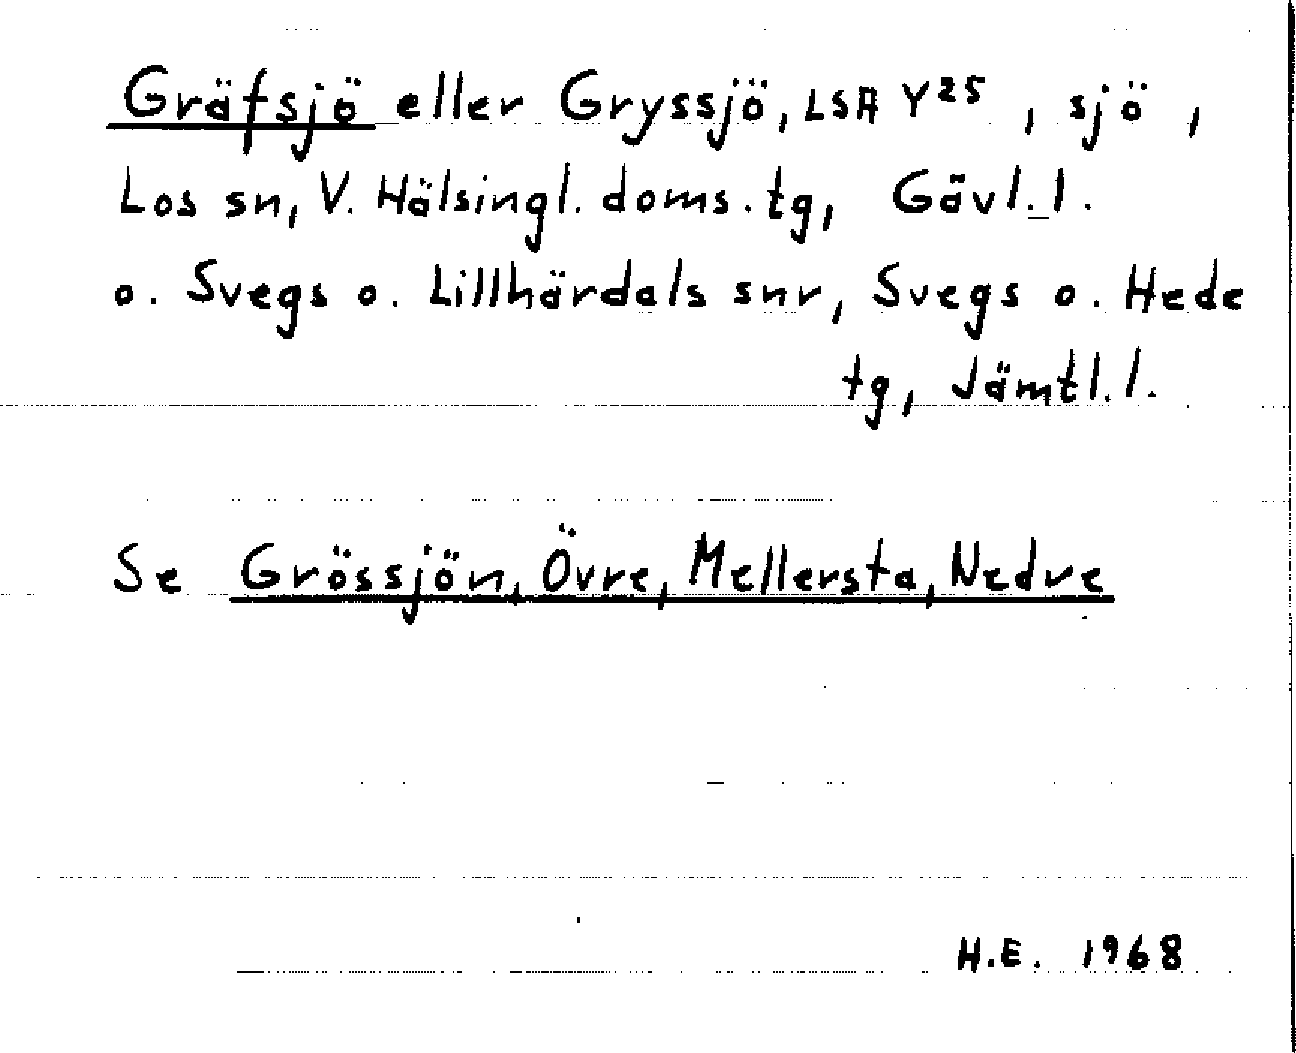 Gräfsjö eller Gryssjö, LSA Y25, sjö,
Los sn, V. Hälsingl. doms. tg, Gävl. l.
o. Svegs o. Lillhärdals snr, Svegs o. Hede
tg, Jämtl. l.
Se Grössjön, Övre, Mellersta, Nedre
H.E. 1968